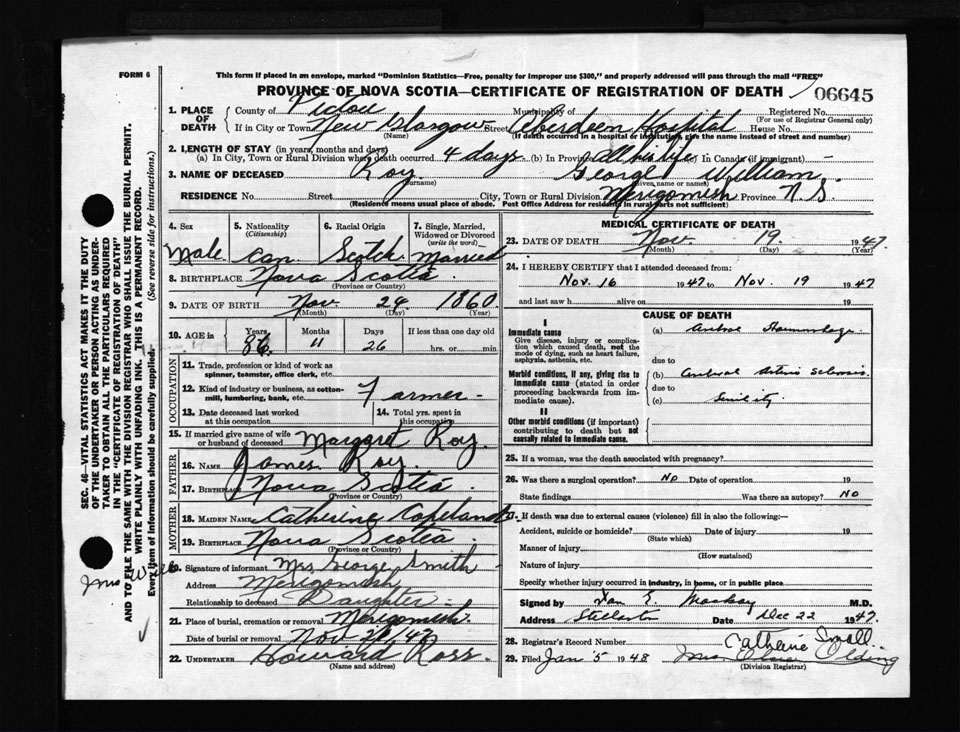 FORM 6
This form if placed in an envelope, marked "Dominion Statistics—Free, penalty for improper use $300," and properly addressed will pass through the mail "FREE"
PROVINCE OF NOVA SCOTIA—CERTIFICATE OF REGISTRATION OF DEATH 06645
1. PLACE OF DEATH
County of Pictou Municipality of Registered No.
(For use of Registrar General only)
If in City or Town New Glasgow Street Aberdeen Hospital House No.
(Name) (If death occurred in a hospital or institution, give the name instead of street and number)
2. LENGTH OF STAY (in years, months and days)
(a) In City, Town or Rural Division where death occurred 4 days (b) In Province all his life In Canada (if immigrant) -
3. NAME OF DECEASED Roy George William
(Surname) (Given name or names)
RESIDENCE No. Street City, Town or Rural Division Merigomish Province N.S.
(Residence means usual place of abode. Post Office Address for residents in rural parts not sufficient)
4. Sex
Male
5. Nationality
(Citizenship)
Can.
6. Racial Origin
Scotch
7. Single, Married,
Widowed or Divorced
(write the word)
Married
8. BIRTHPLACE Nova Scotia
(Province or Country)
9. DATE OF BIRTH Nov. 24 1860
(Month) (Day) (Year)
10. AGE in
Years 86
Months 11
Days 26
If less than one day old
hrs. or min.
OCCUPATION
11. Trade, profession or kind of work as
spinner, teamster, office clerk, etc.
12. Kind of industry or business, as cotton-
mill, lumbering, bank, etc. Farmer -
13. Date deceased last worked
at this occupation
14. Total yrs. spent in
this occupation
15. If married give name of wife
or husband of deceased Margaret Roy.
FATHER
16. NAME James Roy.
17. BIRTHPLACE Nova Scotia
(Province or Country)
MOTHER
18. MAIDEN NAME Catherine Copeland
19. BIRTHPLACE Nova Scotia
(Province or Country)
20. Signature of informant Mrs George Smith -
Address Merigomish
Relationship to deceased Daughter -
21. Place of burial, cremation or removal Merigomish.
Date of burial or removal Nov 47
22. UNDERTAKER Howard Ross.
(Name and address)
MEDICAL CERTIFICATE OF DEATH
23. DATE OF DEATH Nov 19 1947
(Month) (Day) (Year)
24. I HEREBY CERTIFY that I attended deceased from:
Nov. 16 1947 to Nov. 19 1947
and last saw h alive on 19
CAUSE OF DEATH
I
Immediate cause
Give disease, injury or complica-
tion which caused death, not the
mode of dying, such as heart failure,
asphyxia, asthenia, etc.
(a) Cerebral Haemorrhage
due to
Morbid conditions, if any, giving rise to
immediate cause (stated in order
proceeding backwards from im-
mediate cause).
(b) Cerebral Arterio Sclerosis
due to
(c) Senility
II
Other morbid conditions (if important)
contributing to death but not
causally related to immediate cause.
25. If a woman, was the death associated with pregnancy?
26. Was there a surgical operation? No Date of operation 19
State findings Was there an autopsy? No
27. If death was due to external causes (violence) fill in also the following:—
Accident, suicide or homicide? Date of injury 19
(State which)
Manner of injury
(How sustained)
Nature of injury
Specify whether injury occurred in industry, in home, or in public place
Signed by Ian E. Mackay M.D.
Address Stellarton Date Dec 22 1947.
28. Registrar's Record Number
Catherine Small
29. Filed Jan 5 1948 Olding
(Division Registrar)
SEC. 46—VITAL STATISTICS ACT MAKES IT THE DUTY
OF THE UNDERTAKER OR PERSON ACTING AS UNDER-
TAKER TO OBTAIN ALL THE PARTICULARS REQUIRED
IN THE "CERTIFICATE OF REGISTRATION OF DEATH"
AND TO FILE THE SAME WITH THE DIVISION REGISTRAR WHO SHALL ISSUE THE BURIAL PERMIT.
WRITE PLAINLY WITH UNFADING INK. THIS IS A PERMANENT RECORD.
Every item of information should be carefully supplied. (See reverse side for instructions.)